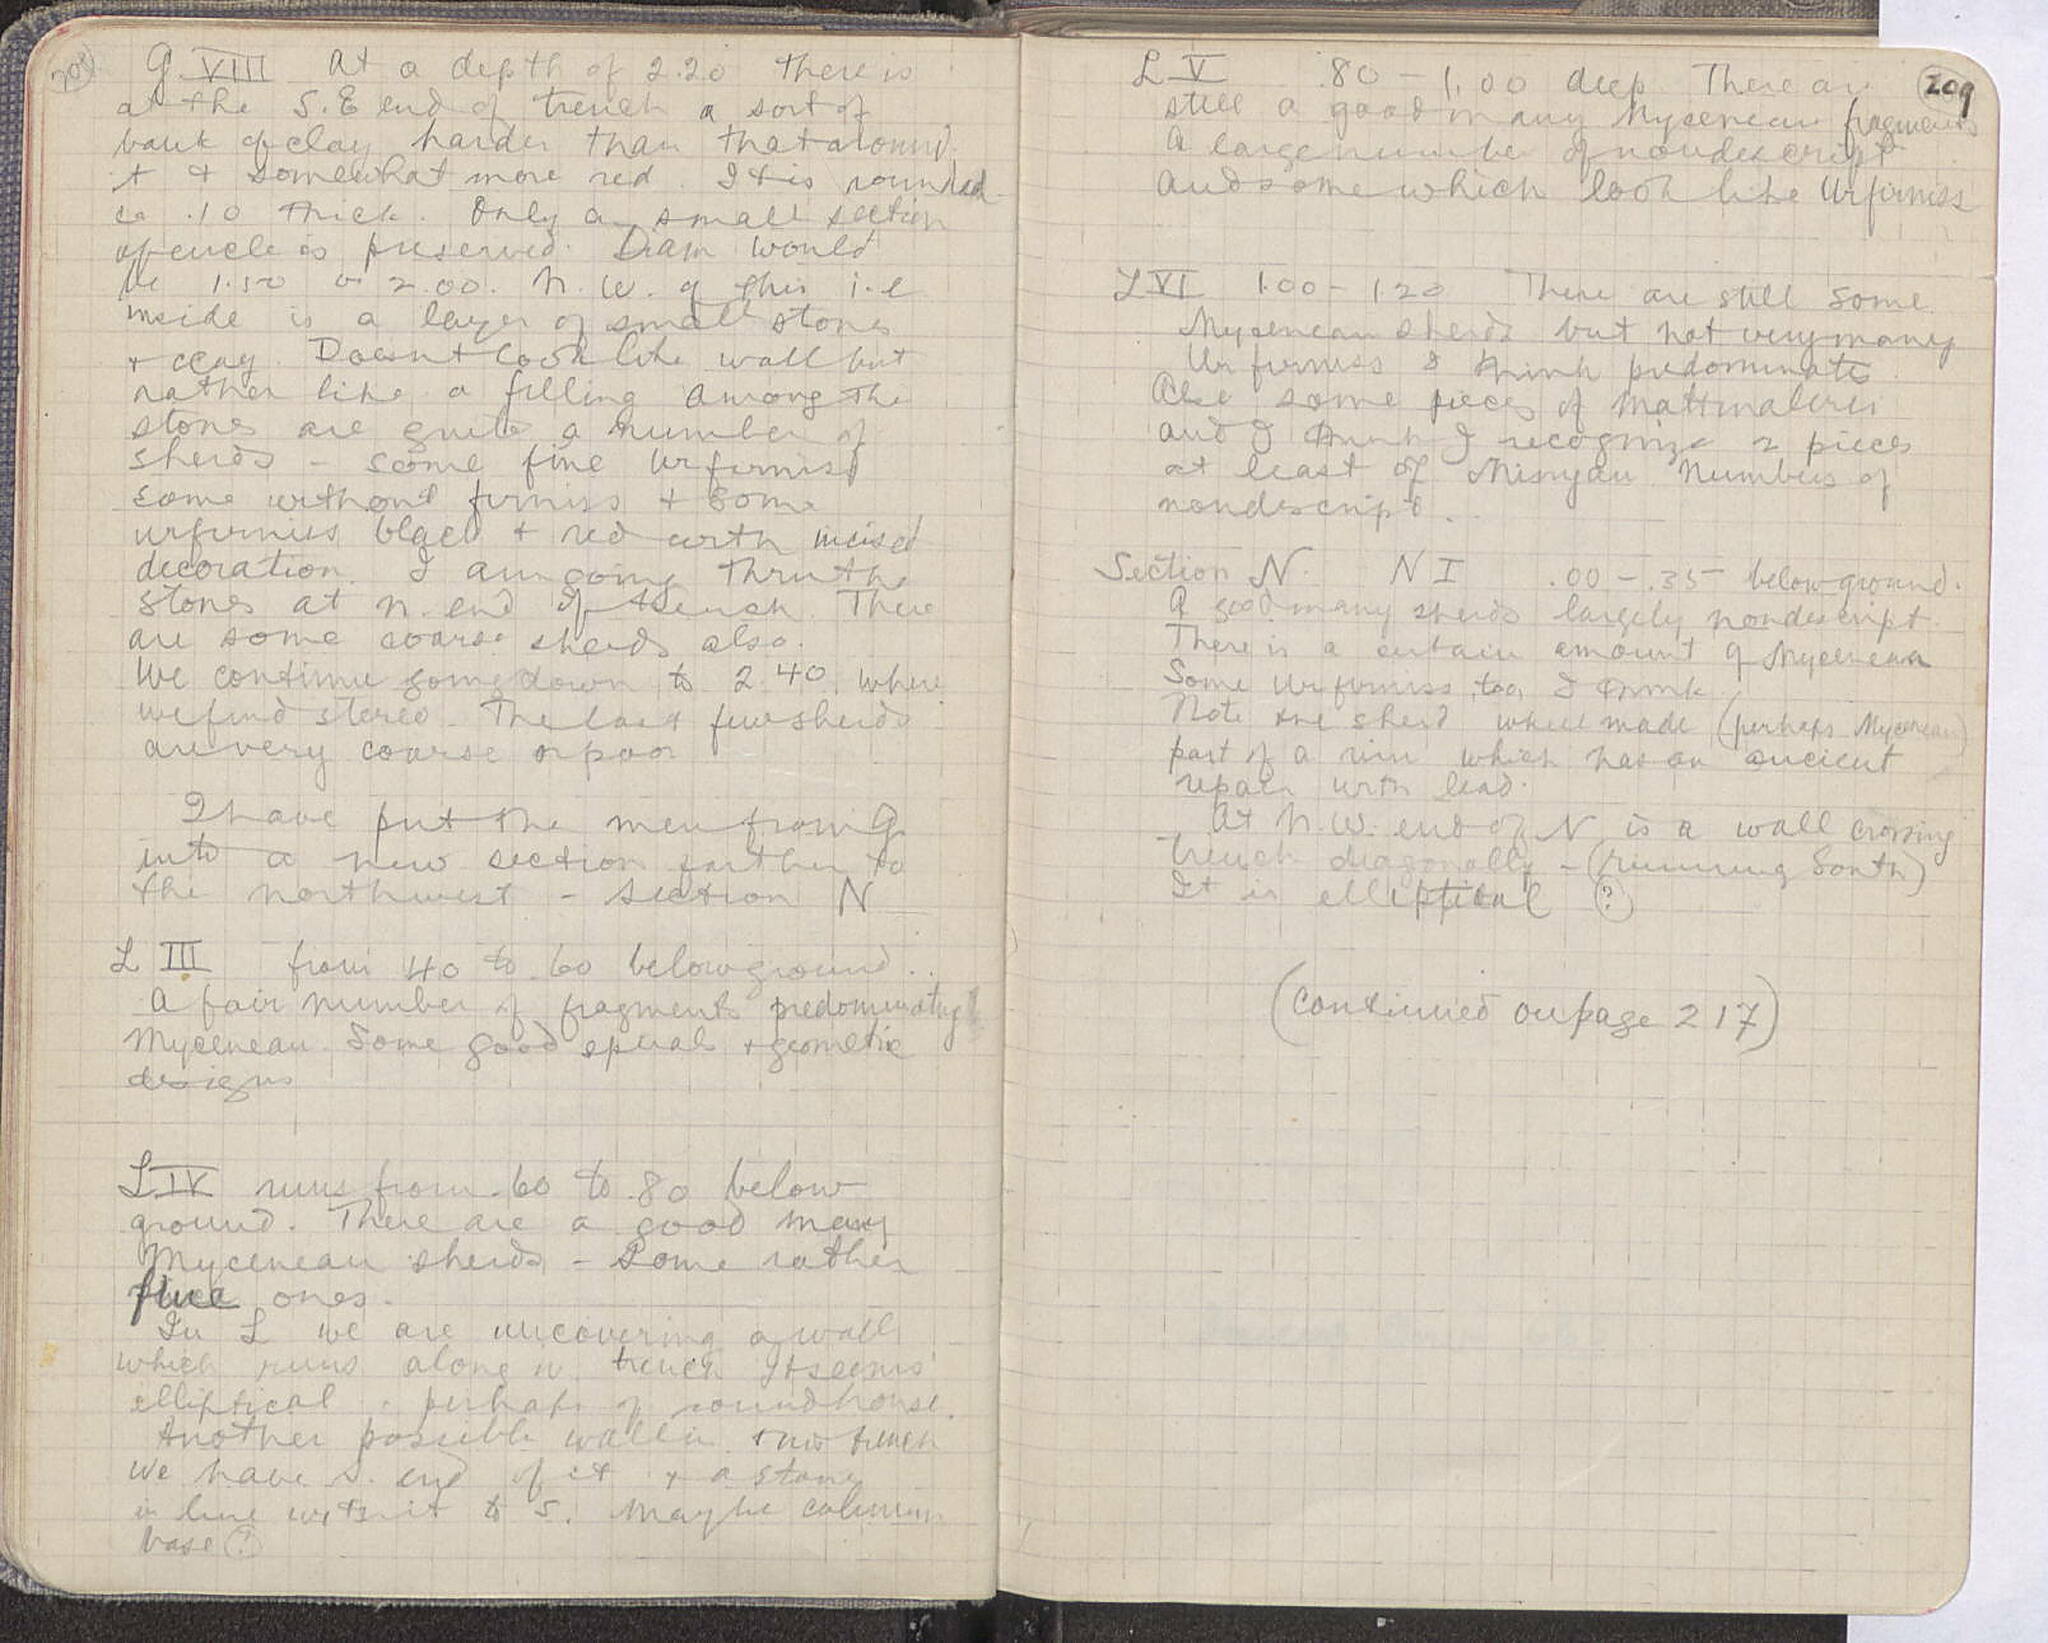 208
G VIII At a depth of 2.20 there is
at the S.E end of trench a sort of
bank of clay harder than that around
it & somewhat more red. It is rounded
ca .10 thick. Only a small section
of circle is preserved. Diam would
be 1.50 or 2.00. N.W. of this i.e
inside is a layer of small stones
+ clay. Doesn't look like wall but
rather like a filling Among the
stones are quite a number of
sherds - some fine Urfirniss
some without firniss + some
urfirniss black + red with incised
decoration. I am going thru the
stones at N. end of trench. There
are some coarse sherds also.
We continue going down to 2.40 where
we find stereo. The last few sherds
are very coarse or poor
I have put the men from G
into a new section farther to
the northwest - section N
L III from 40 to .60 below ground..
A fair number of fragments predominatingly
Mycenean. Some good spirals + geometric
designs
L IV runs from .60 to .80 below
ground. There are a good many
Mycenean sherds - Some rather
fine ones.
In L we are uncovering a wall
which runs along W. trench It seems
elliptical - perhaps of roundhouse.
Another possible wall in this trench
We have N. end of it + a stone
in line with it to S. Maybe column
base (?)
209
L V .80 - 1.00 deep. There are
still a good many Mycenean fragments
A large number of nondescript
and some which look like Urfirniss
L VI 1.00 - 1.20 There are still some
Mycenean sherds but not very many
Urfirniss I think predominates.
Also some pieces of Mattmalerei
and I think I recognize 2 pieces
at least of Minyan. Numbers of
nondescript.
Section N. N I .00 - .35 below ground.
A good many sherds largely nondescript.
There is a certain amount of Mycenean
Some Urfirniss, too, I think.
Note one sherd wheel made (perhaps Mycenean)
part of a rim which has an ancient
repair with lead.
At N.W. end of N is a wall crossing
trench diagonally - (running South)
It is elliptical (?)
(continued on page 217)